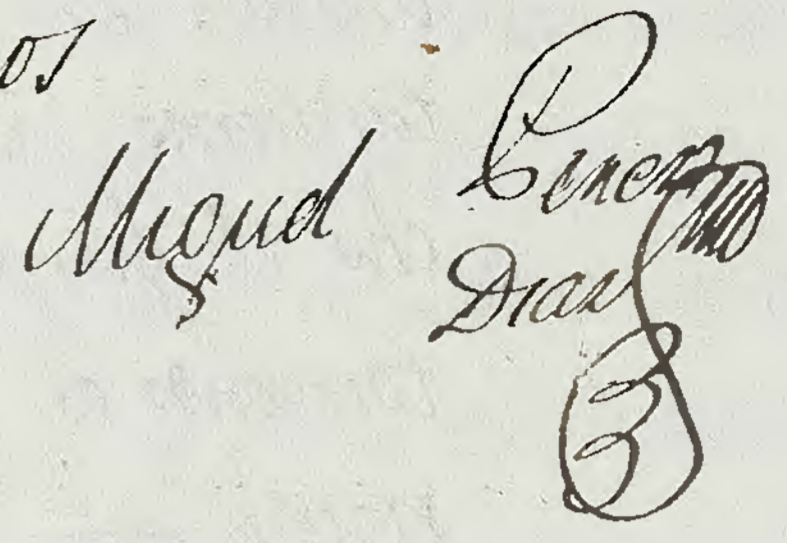 os
Miguel Perez
Dias